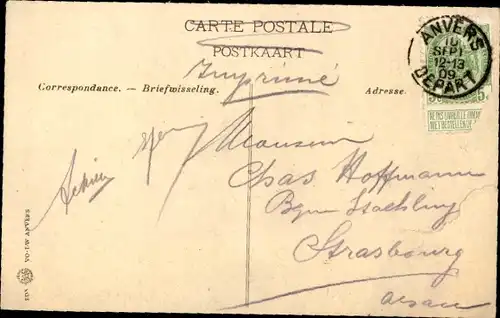 CARTE POSTALE
POSTKAART
Imprimé
Correspondance. — Briefwisseling.
Adresse.
ANVERS
10
SEPT
12-13
09
DEPART
5 5
NE PAS LIVRER LE DIMANCHE
NIET BESTELLEN OP
Monsieur
Chas Hoffmann
Strasbourg
Alsace